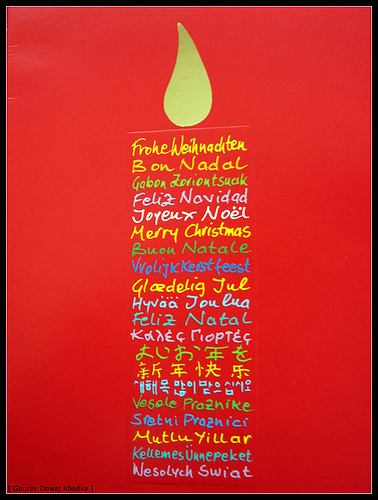 Frohe Weihnachten
Bon Nadal
Gabon Zoriontsuak
Feliz Navidad
Joyeux Noël
Merry Christmas
Buon Natale
Vrolijk Kerstfeest
Glædelig Jul
Hyvää Joulua
Feliz Natal
Καλές Γιορτές
よいお年を
新年快乐
새해 복 많이 받으십시오
Vesele Praznike
Sretni Praznici
Mutlu Yillar
Kellemes Ünnepeket
Wesolych Swiat
[ Gaurav Dhwaj Khadka ]